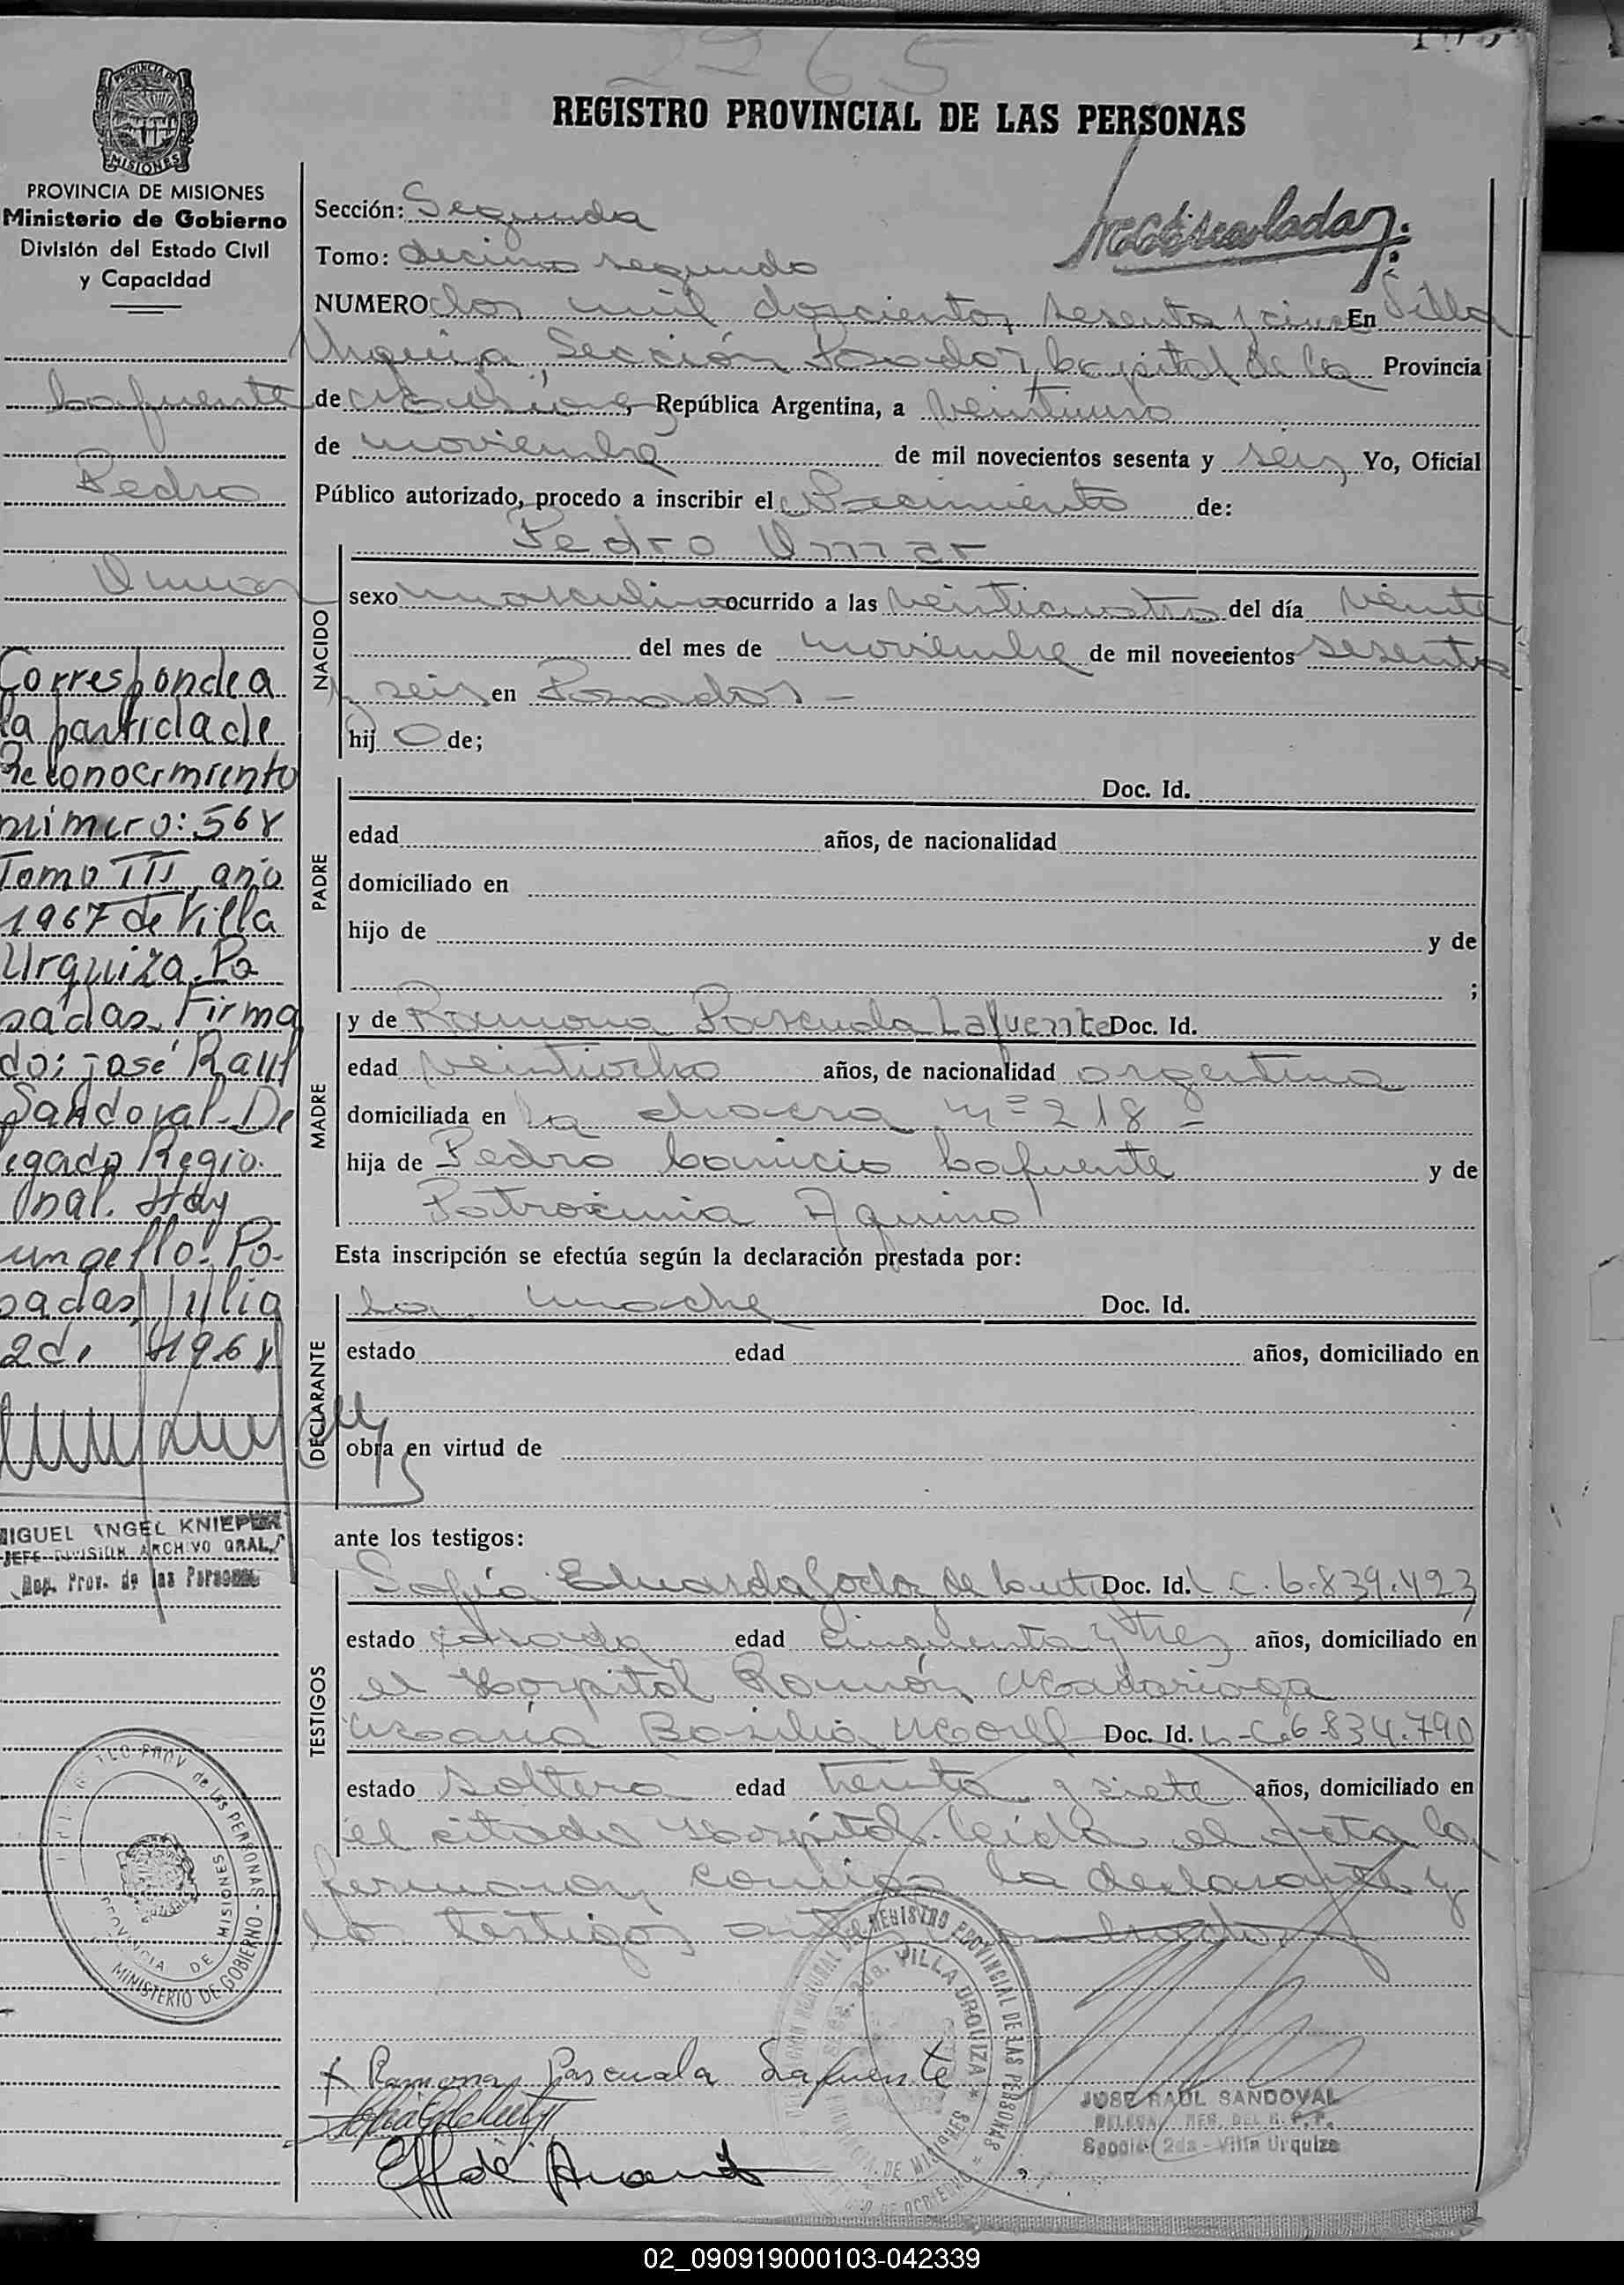 2265
REGISTRO PROVINCIAL DE LAS PERSONAS
PROVINCIA DE MISIONES
PROVINCIA DE MISIONES
Ministerio de Gobierno
División del Estado Civil
y Capacidad
Sección: Segunda
Tomo: decimo segundo
NUMERO dos mil doscientos sesenta y cinco En Villa
Urquiza, Sección Posadas, Capital de la Provincia
de Misiones, República Argentina, a veintiuno
de noviembre de mil novecientos sesenta y seis Yo, Oficial
Público autorizado, procedo a inscribir el Nacimiento de:
Pedro Omar
NACIDO
sexo masculino ocurrido a las veinticuatro del día veinte
del mes de noviembre de mil novecientos sesenta
y seis en Posadas -
hij o de;
PADRE
Doc. Id.
edad años, de nacionalidad
domiciliado en
hijo de y de
;
MADRE
y de Ramona Pascuala Lafuente Doc. Id.
edad veintiocho años, de nacionalidad argentina
domiciliada en la chacra nº 218 -
hija de Pedro Lafuente y de
Patrocinia Aquino
Esta inscripción se efectúa según la declaración prestada por:
DECLARANTE
La madre Doc. Id.
estado edad años, domiciliado en
obra en virtud de
ante los testigos:
TESTIGOS
Sofía Eduarda Godoy de Doc. Id. L.C. 6.839.423
estado casada edad cincuenta y tres años, domiciliado en
el Hospital Ramón Madariaga
María Basilia Doc. Id. L.C. 6.834.790
estado soltera edad treinta y siete años, domiciliado en
el citado Hospital. Leída el acta la
firmaron conmigo la declarante y
los testigos
Ramona Pascuala Lafuente
JOSE RAUL SANDOVAL
DELEGA. REG. DEL R. P. P.
Sección 2da - Villa Urquiza
DEL REGISTRO PROVINCIAL DE LAS PERSONAS
2da. VILLA URQUIZA
Lafuente
Pedro
Omar
Corresponde a
la partida de
Reconocimiento
número: 568
Tomo III año
1967 de Villa
Urquiza. Po
sadas. Firma
do: José Raul
Sandoval - De
legado Regio
nal. Hay
un sello. Po-
sadas, Julio
2 de 1968
MIGUEL ANGEL KNIEPER
JEFE DIVISION ARCHIVO GRAL.
Reg. Prov. de las Personas
PROV de las PERSONAS - MINISTERIO DE GOBIERNO
PROVINCIA DE MISIONES
02_090919000103-042339